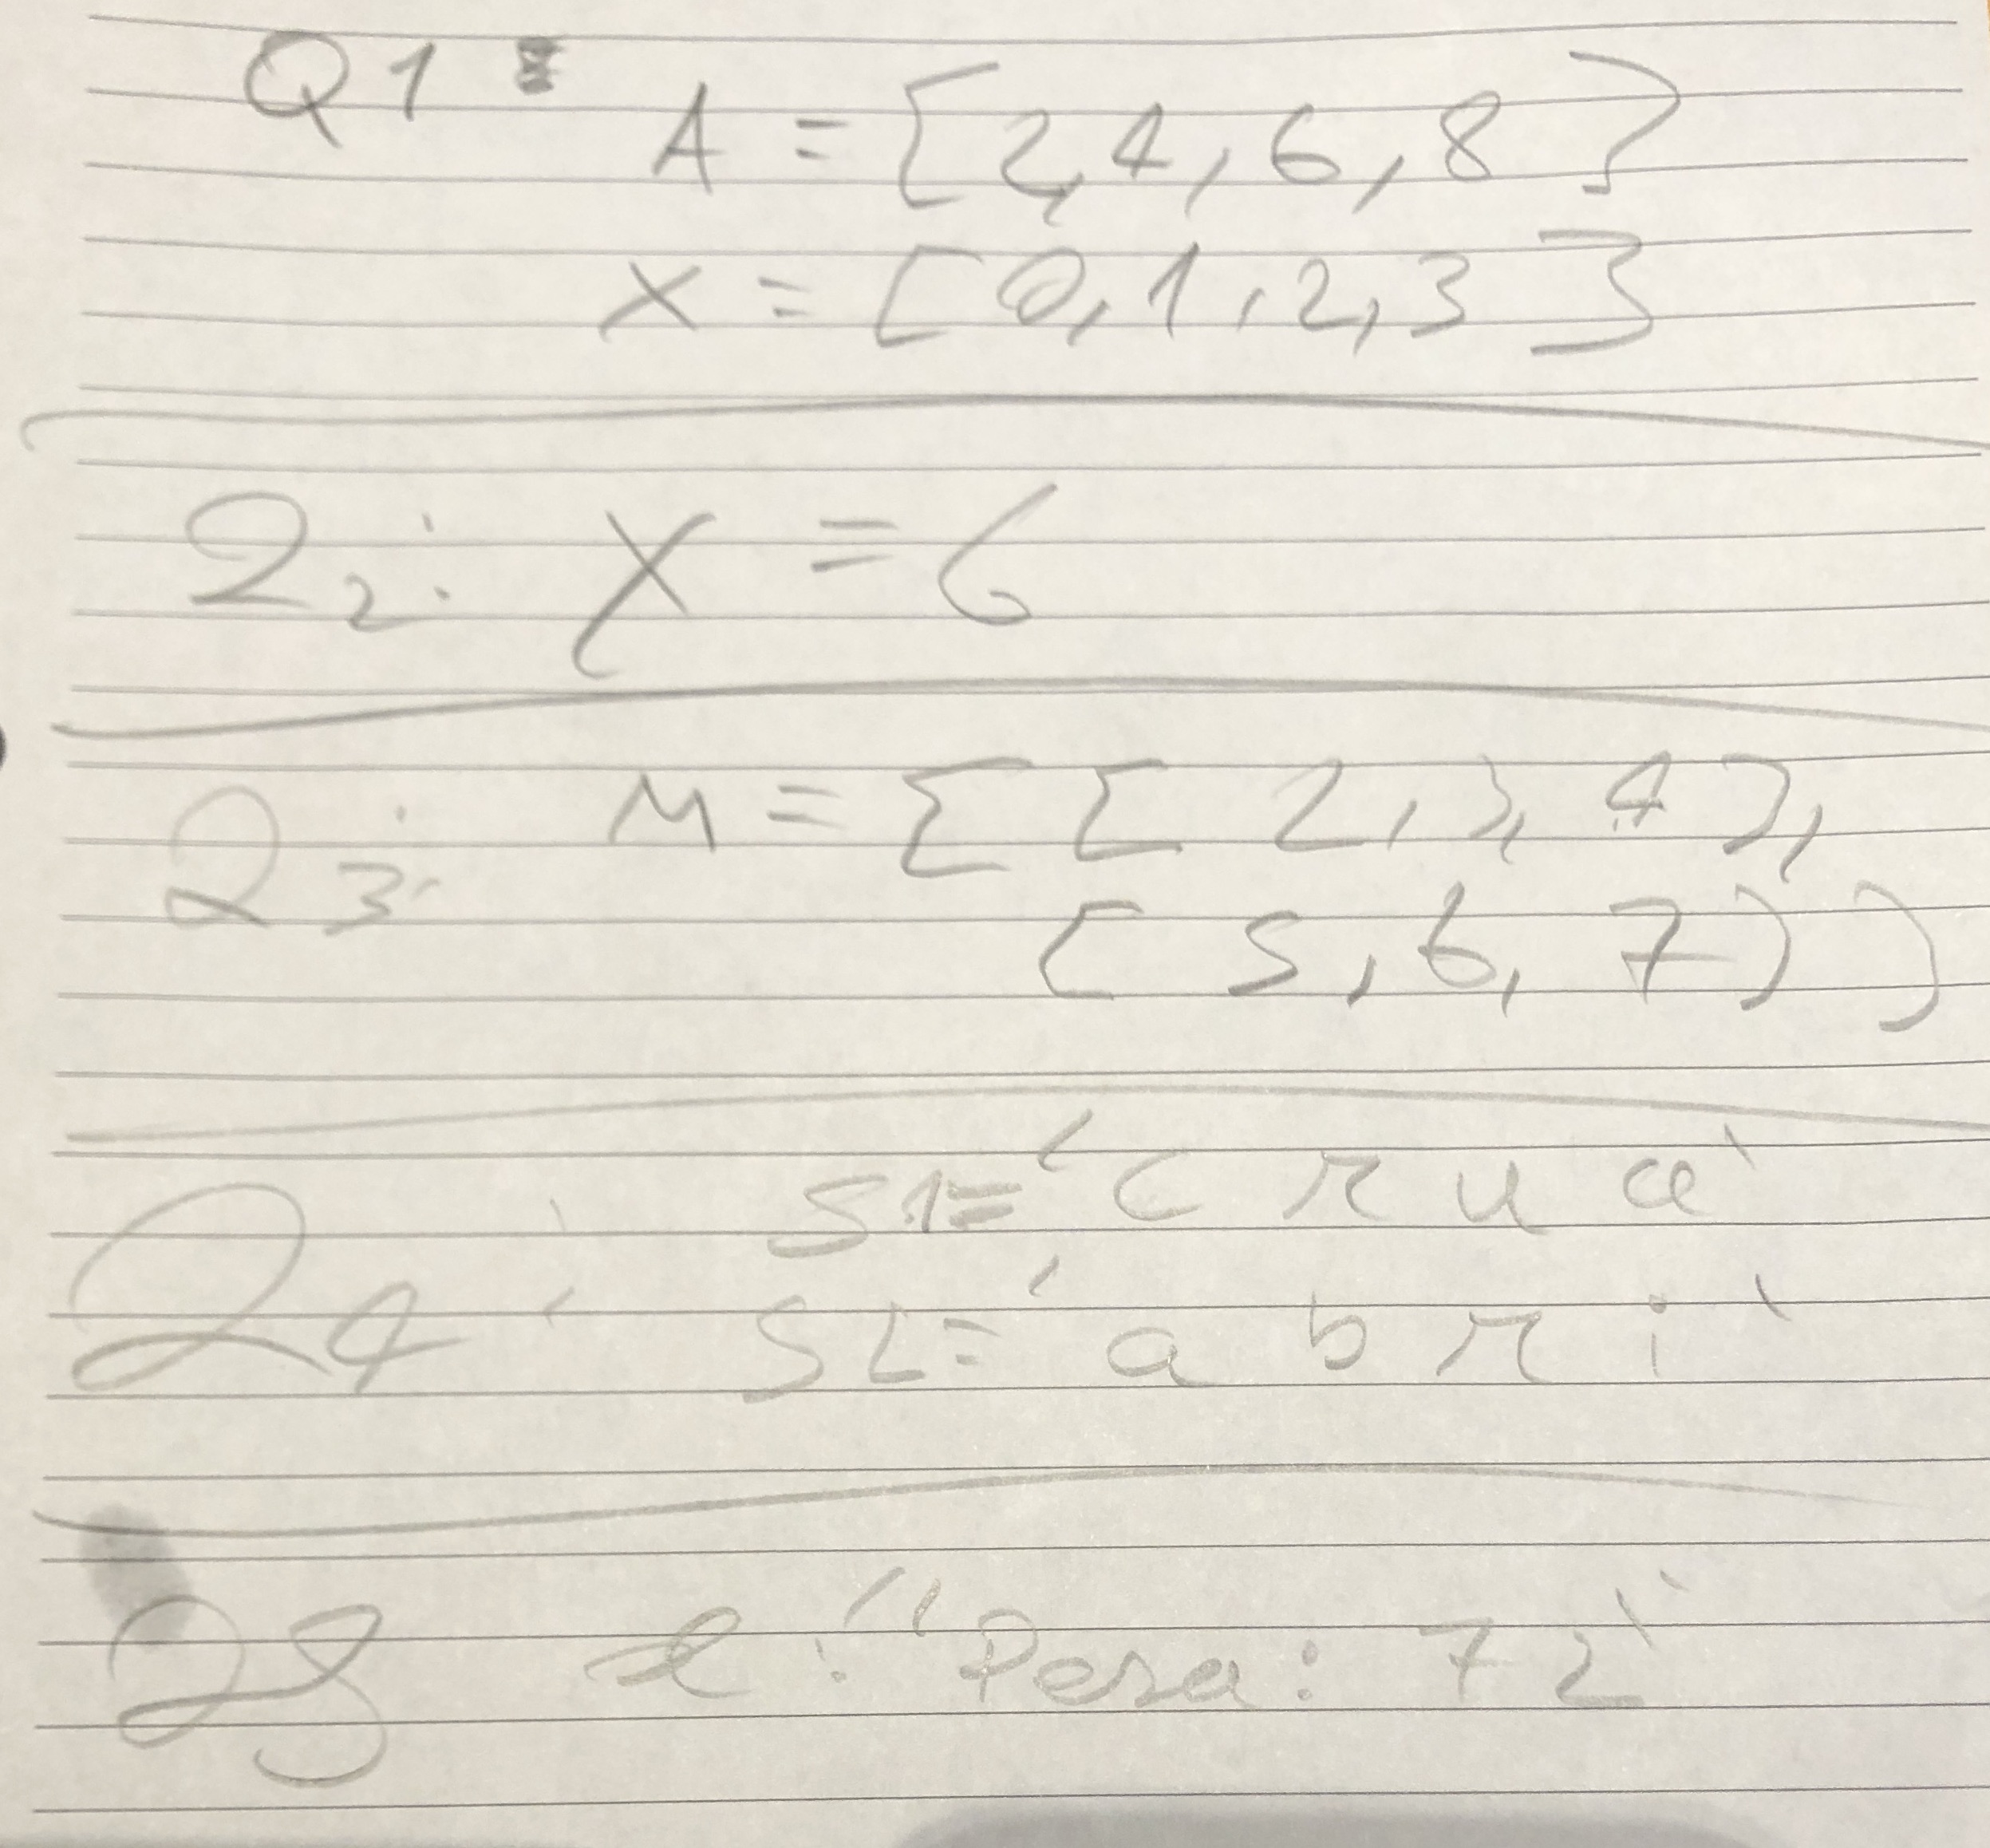 Q1: A = {2,4,6,8}
x = [0,1,2,3]
Q2: X = 6
Q3: M = [[2,3,4],
[5,6,7]]
Q4: S1= 'c r u a'
S2= 'a b r i'
Q5 : "Pera: 72"